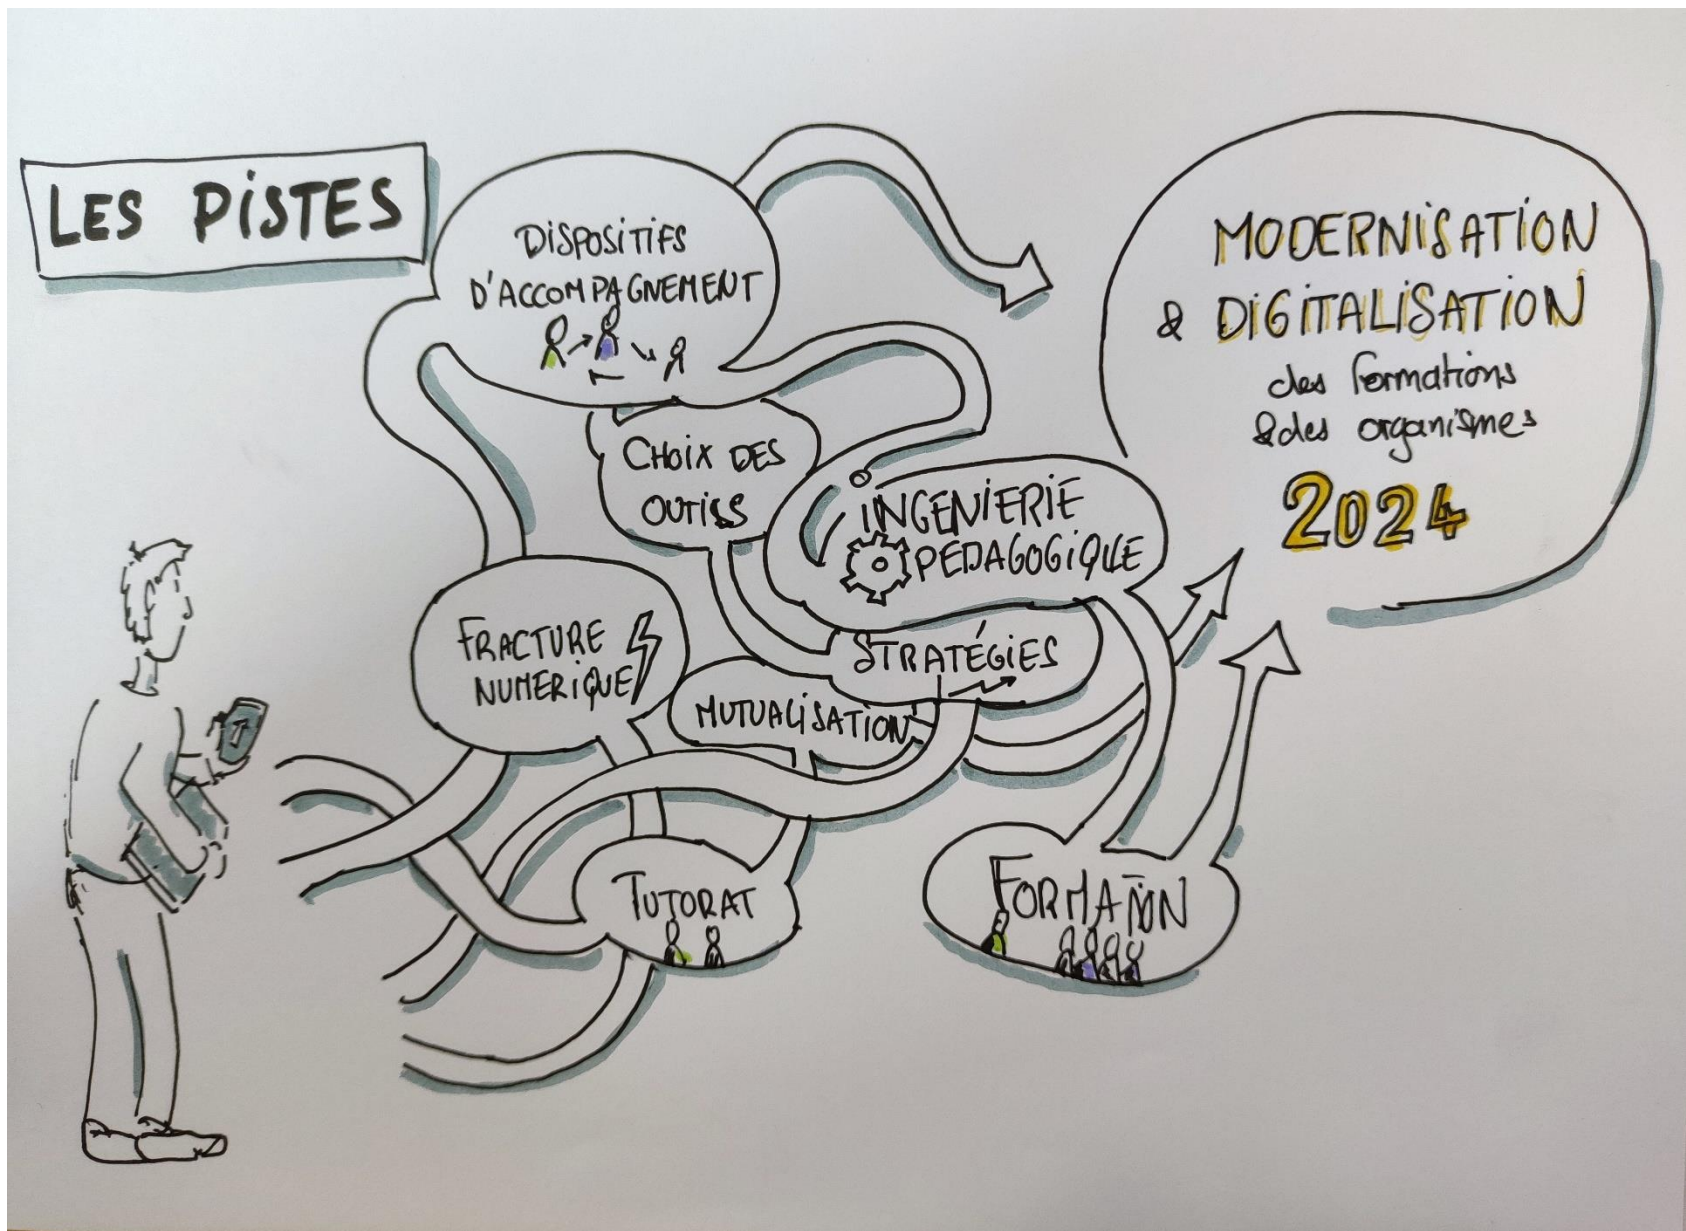 LES PISTES
DISPOSITIFS
D'ACCOMPAGNEMENT
CHOIX DES
OUTILS
INGENIERIE
PEDAGOGIQUE
FRACTURE
NUMERIQUE
STRATÉGIES
MUTUALISATION
TUTORAT
FORMATION
MODERNISATION
& DIGITALISATION
des formations
& des organismes
2024